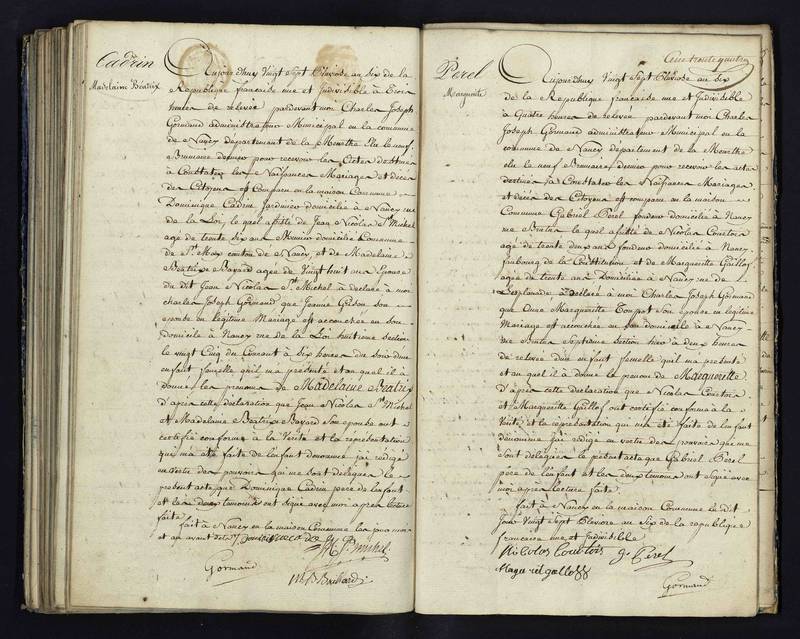 Cadrin
Madelaine Beatrix
Aujourdhuy Vingt Sept Pluviose an six de la
Republique francaise une et Indivisible à trois
heures de relevée pardevant moi Charles Joseph
Gormand administrateur Municipal en la commune
de Nancy département de la Meurthe Elu le neuf
Brumaire dernier pour recevoir les Actes destinés
à Constater les Naissances Mariages et décès
des Citoyens est Comparu en la maison Commune
Dominique Cadrin Jardinier domicilié à Nancy rue
de la Loi, le quel assisté de Jean Nicolas St Michel
agé de trente six ans Musnier domicilié Commune
de St Max canton de Nancy, et de Madelaine
Beatrix Bayard agée de Vingt huit ans Epouse
du dit Jean Nicolas St Michel à déclaré à moi
charles Joseph Gormand que Jeanne Gilson son
epouse en legitime Mariage est accouchée en son
domicile à Nancy rue de la Loi huitieme section
le vingt Cinq du Courant à six heures du soir d'une
enfant femelle quil m'a présenté et au quel il à
donné les prenoms de Madelaine Beatrix
d'après cette déclaration que Jean Nicolas St Michel
et Madelaine Beatrix Bayard son epouse ont
certifié conforme à la Verité et la représentation
qui m'a été faite de l'enfant denommé j'ai redigé
en vertu des pouvoirs qui me sont délégués le
présent acte que Dominique Cadrin pere de l'enfant
et les deux temoins ont signé avec moi après lecture
faite
fait à Nancy en la maison Commune les jour mois
et an avant dits
St Michel
Gormand
Perel
Marguerite
Cent trente quatre
Aujourdhuy Vingt Sept Pluviose an six
de la Republique francaise une et Indivisible
à Quatre heures de relevée pardevant moi Charles
Joseph Gormand administrateur Municipal en la
commune de Nancy département de la Meurthe
elu le neuf Brumaire dernier pour recevoir les actes
destinés à Constater les Naissances Mariages
et décès des Citoyens est comparu en la maison
Commune Gabriel Perel fondeur domicilié à Nancy
rue le quel assisté de Nicolas Courtois
agé de trente deux ans fondeur domicilié à Nancy
faubourg de la Constitution et de Marguerite Gaillot
agée de trente ans Domiciliée à Nancy rue de
l'esplanade, à Déclaré à moi Charles Joseph Gormand
que Anne Marguerite son épouse en légitime
Mariage est accouchée en son domicile à Nancy
rue Septieme section hier à deux heures
de relevée d'un enfant femelle quil m'a présenté
et au quel il à donné le prenom de Marguerite
d'après cette déclaration que Nicolas Courtois
et Marguerite Gaillot ont certifié conforme à la
Verité et la représentation qui m'a été faite de l'enfant
dénommé j'ai redigé en vertu des pouvoirs qui me
sont délégués le présent acte que Gabriel Perel
père de l'enfant et les deux temoins ont signé avec
moi après lecture faite
fait à Nancy en la maison Commune le dit
Jour Vingt Sept Pluviose an Six de la republique
francaise une et Indivisible
Nicolas Courtois g Perel
Gormand